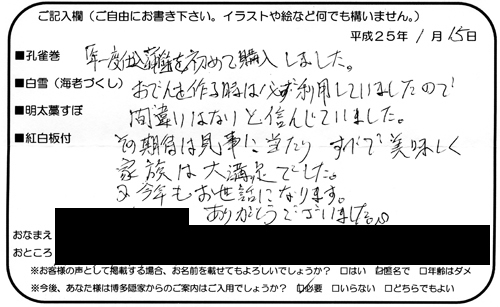 ご記入欄（ご自由にお書き下さい。イラストや絵など何でも構いません。）
平成25年 1月 15日
■孔雀巻
■白雪（海老づくし）
■明太藁すぼ
■紅白板付
を初めて購入しました。
おでんを作る時は必ず利用していましたので
間違いはないと信じていました。
その期待は見事に当たり すべて美味しく
家族は大満足でした。
又今年もお世話になります。
ありがとうございました。
おなまえ
おところ
※お客様の声として掲載する場合、お名前を載せてもよろしいでしょうか？ □はい ☑匿名で □年齢はダメ
※今後、あなた様は博多隠家からのご案内はご入用でしょうか？ ☑必要 □いらない □どちらでもよい